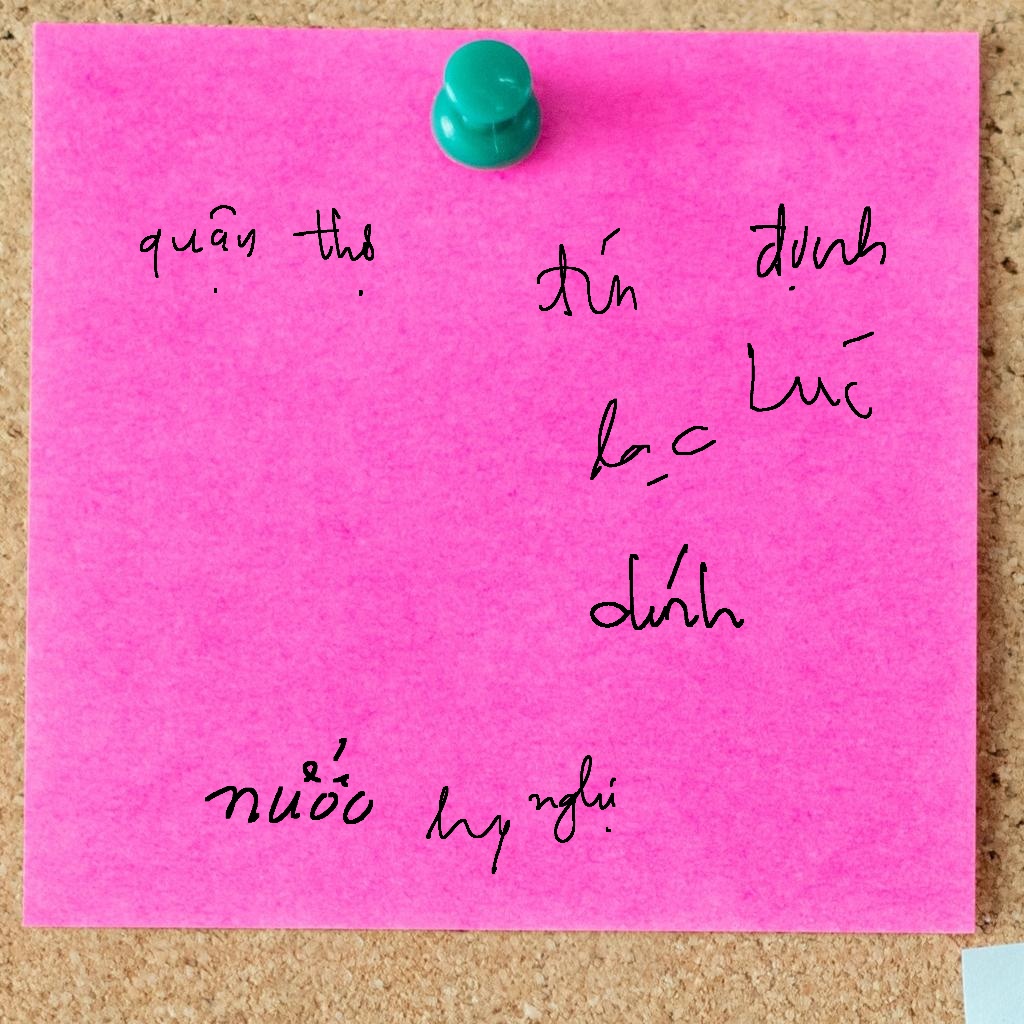 quận thọ tín định
Lúc
lạc
dính
nước hy nghị